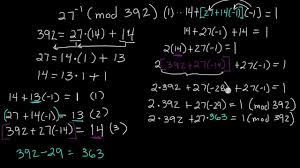 27⁻¹ (mod 392)
392 = 27·(14) + 14
27 = 14·(1) + 13
14 = 13·1 + 1
14 + 13(-1) = 1 (1)
27 + 14(-1) = 13 (2)
392 + 27(-14) = 14 (3)
392 - 29 = 363
(1)·14 + [27 + 14(-1)](-1) = 1
14 + 27(-1) + 14 = 1
2(14) + 27(-1) = 1
2[392 + 27(-14)] + 27(-1) = 1
2·392 + 27(-28) + 27(-1) = 1
2·392 + 27(-29) = 1 (mod 392)
2·392 + 27·363 = 1 (mod 392)